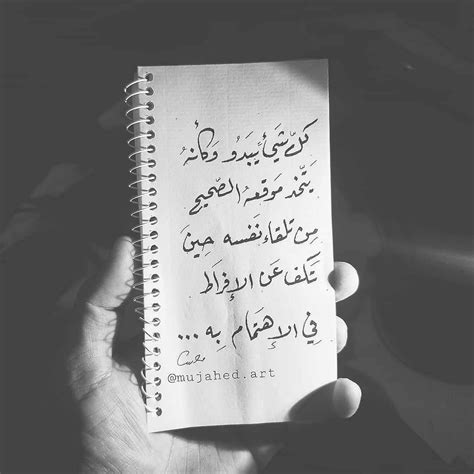 كلّ شيئ يبدُو وَكأنهُ
يَتّخد مَوقعهُ الصّحيح
مِن تلقاء نَفسه حِينَ
تَكف عَن الإفراط
فِي الإهتمام بِه ...
@mujahed.art